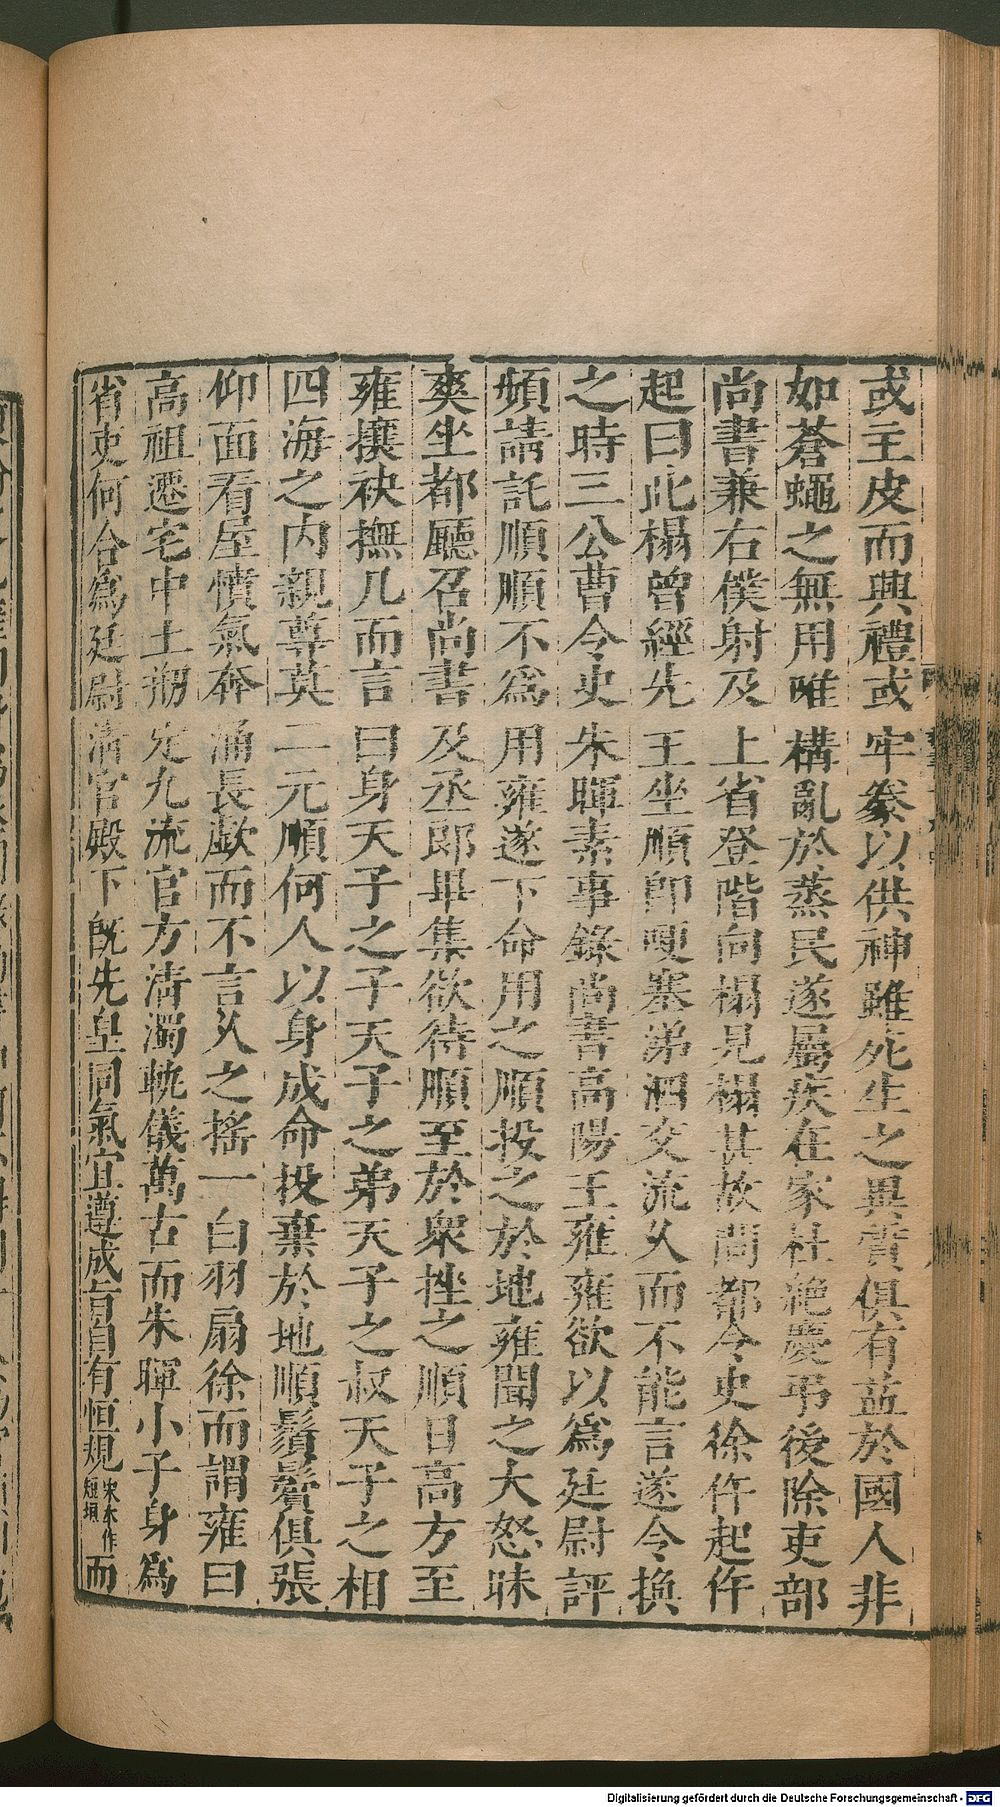 或主皮而興禮或牢豢以供神雖死生之異質俱有益於國人非
如蒼蠅之無用唯構亂於蒸民遂屬疾在家杜絶慶弔後除吏部
尚書兼右僕射及上省登階向榻見榻甚故問都令史徐仵起仵
起曰此榻曾經先王坐順卽哽塞涕泗交流乆而不能言遂令換
之時三公曹令史朱暉素事錄尚書高陽王雍雍欲以爲廷尉評
頻請託順順不爲用雍遂下命用之順投之於地雍聞之大怒昧
爽坐都廳召尚書及丞郎畢集欲待順至於衆挫之順日高方至
雍攘袂撫几而言曰身天子之子天子之弟天子之叔天子之相
四海之内親尊莫二元順何人以身成命投棄於地順鬚鬢俱張
仰面看屋憤氣奔涌長歔而不言乆之搖一白羽扇徐而謂雍曰
高祖遷宅中土刱定九流官方淸濁軌儀萬古而朱暉小子身爲
省吏何合爲廷尉淸官殿下旣先皇同氣宜遵成旨自有恒規宋本作短垣而
Digitalisierung gefördert durch die Deutsche Forschungsgemeinschaft - DFG